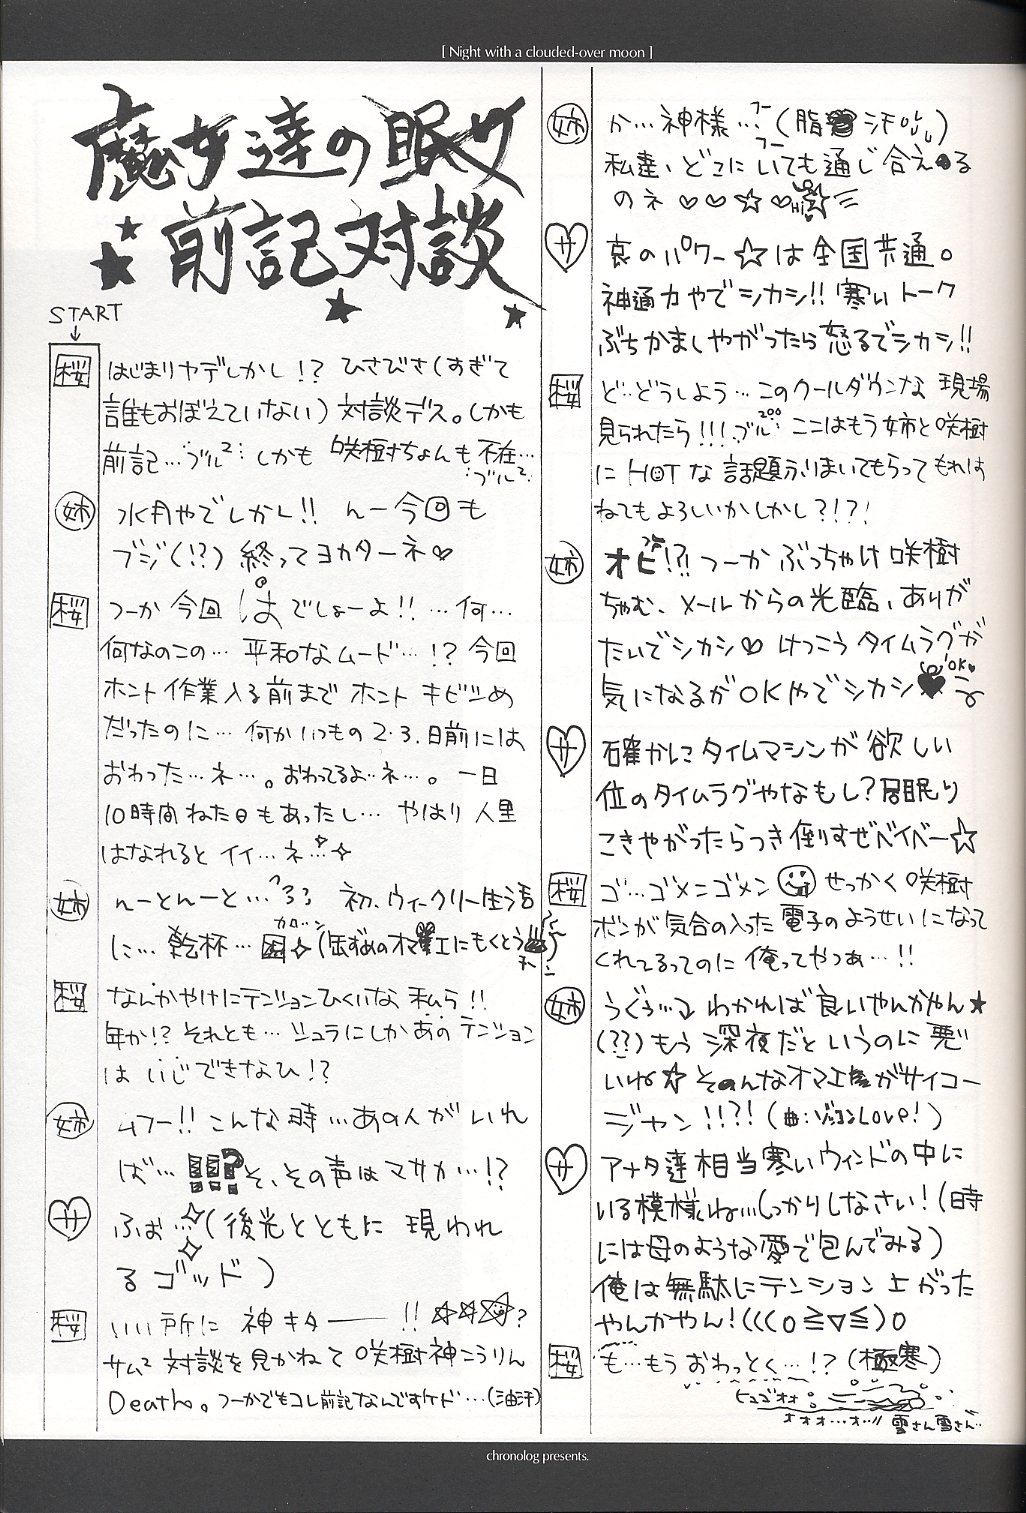 [ Night with a clouded-over moon ]
魔女達の眠り
前記対談
START
桜 はじまりヤデしかし!? ひさびさ(すぎて
誰もおぼえていない) 対談デス。しかも
前記…ブル² しかも 咲樹ちょんも不在…
ブル²
姉 水月やでしかし!! んー今回も
ブジ(!?) 終ってヨカターネ♡
桜 つーか 今回 は でしょーよ!! …何…
何なのこの… 平和なムード…!? 今回
ホント作業入る前まで ホント キビシめ
だったのに… 何かいつもの2・3.日前には
おわった…ネ…。おわってるよ…ネ…。一日
10時間ねた日もあったし… やはり 人里
はなれると イイ…ネ…
姉 んーとんーと… 初、ウィークリー生活
に… 乾杯…
桜 なんかやけにテンションひくいな 私ら!!
年か!? それとも… シュラにしかあのテンション
は いじできなひ!?
姉 ムフー!! こんな時…あの人がいれ
ば… !!!? そ、その声は マサカ…!?
サ ふぉ…(後光とともに 現われ
る ゴッド)
桜 いい所に 神キター―― !! ☆☆☆?
サム² 対談を見かねて 咲樹神こうりん
Death。つーかでもコレ前記なんですケド…(油汗)
姉 か…神様…(脂 汗)
フー
フー
私達、どこにいても通じ合える
のネ ♡♡☆♡
Hi
サ 哀のパワー☆は全国共通。
神通力やでシカシ!! 寒いトーク
ぶちかましやがったら怒るでシカシ!!
桜 ど…どうしよう…このクールダウンな 現場
見られたら!!!ブル… ここはもう姉と咲樹
に HOT な 話題ふりまいてもらってもれは
ねてもよろしいかしかし?!?!
姉 オビ!?! つーか ぶっちゃけ 咲樹
ちゃむ、メールからの光臨、ありが
たいでシカシ♡ けっこう タイムラグが
気になるが OKやでシカシ♥
OK♥
サ 確かにタイムマシンが 欲しい
位のタイムラグやなもし? 居眠り
こきやがったらつき倒すぜベイベー☆
桜 ゴ…ゴメニゴメン せっかく 咲樹
ボンが 気合の入った 電子のようせいになって
くれてるってのに 俺ってやつぁ…!!
姉 うぐぅ… わかれば良いやんかやん★
(??)もう 深夜だと いうのに 悪
いね☆ そのんなオマエ達がサイコー
ジャン!!?!
サ アナタ達相当寒いウィンドの中に
いる模様ね…しっかりしなさい!(時
には母のような愛で包んでみる)
俺は無駄にテンション上がった
やんかやん!(((o≧▽≦)o
桜 も…もう おわっとく…!? (極寒)
ヒュゴオオ
オオオ…オ…!! 雪さん雪さん…
chronolog presents.